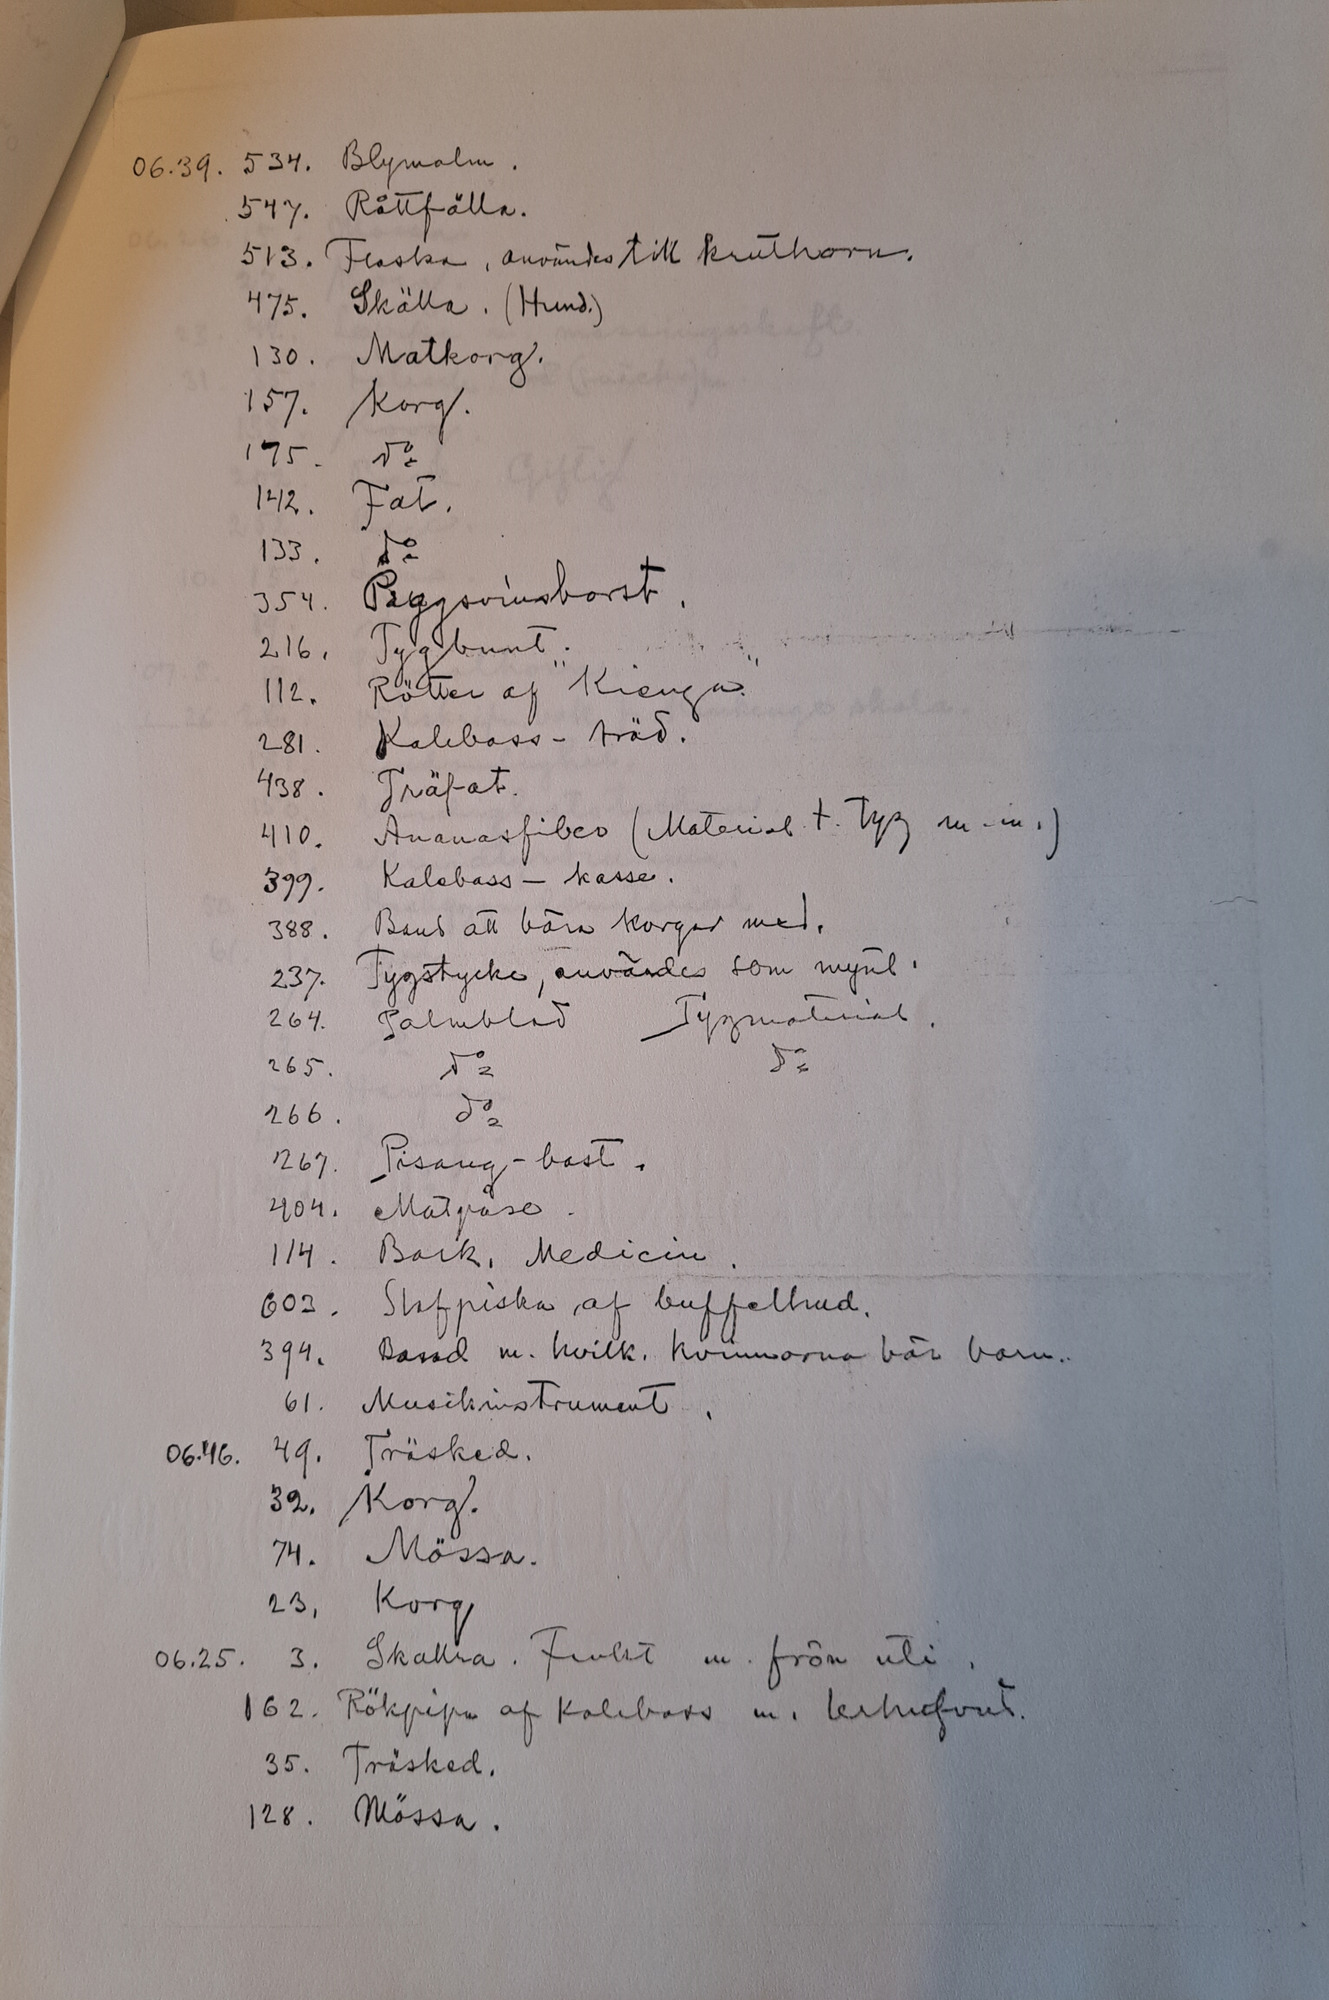 06.39. 534. Blymalm.
547. Råttfälla.
513. Flaska, användes till kruthorn.
475. Skälla. (Hund.)
130. Matkorg.
157. Korg.
175. do
142. Fat.
133. do
354. Piggsvinsborst.
216. Tygbunt.
112. Rötter af "Kienga".
281. Kalebass- träd.
438. Träfat.
410. Ananasfiber (Material t. tyg m.m.)
399. Kalebass- kasse.
388. Band att bära korgar med.
237. Tygstycke, användes som mynt.
264. Palmblad Tygmaterial.
265. do do
266. do
267. Pisang-bast.
404. Matpåse.
114. Bark. Medicin.
603. Slafpiska af buffelhud.
394. Band m. hvilk. kvinnorna bär barn..
61. Musikinstrument.
06.46. 49. Träsked.
32. Korg.
74. Mössa.
23, Korg
06.25. 3. Skallra. Frukt m. frön uti.
162. Rökpipa af kalebass m.
35. Träsked.
128. Mössa.